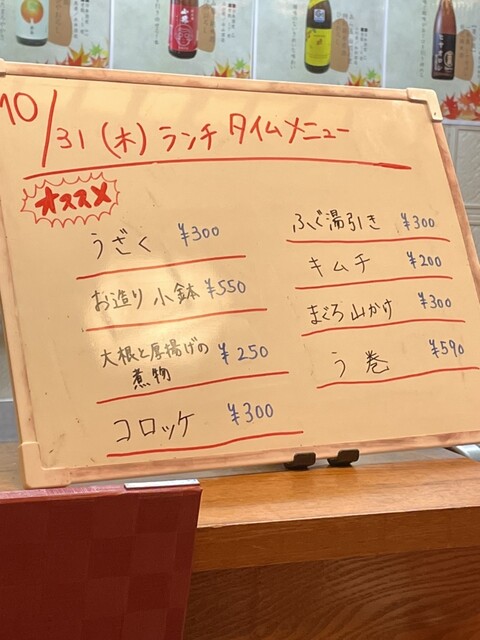 10/31(木)ランチタイムメニュー
オススメ
うざく ¥300
お造り小鉢 ¥550
大根と厚揚げの
煮物 ¥250
コロッケ ¥300
ふぐ湯引き ¥300
キムチ ¥200
まぐろ山かけ ¥300
う巻 ¥590